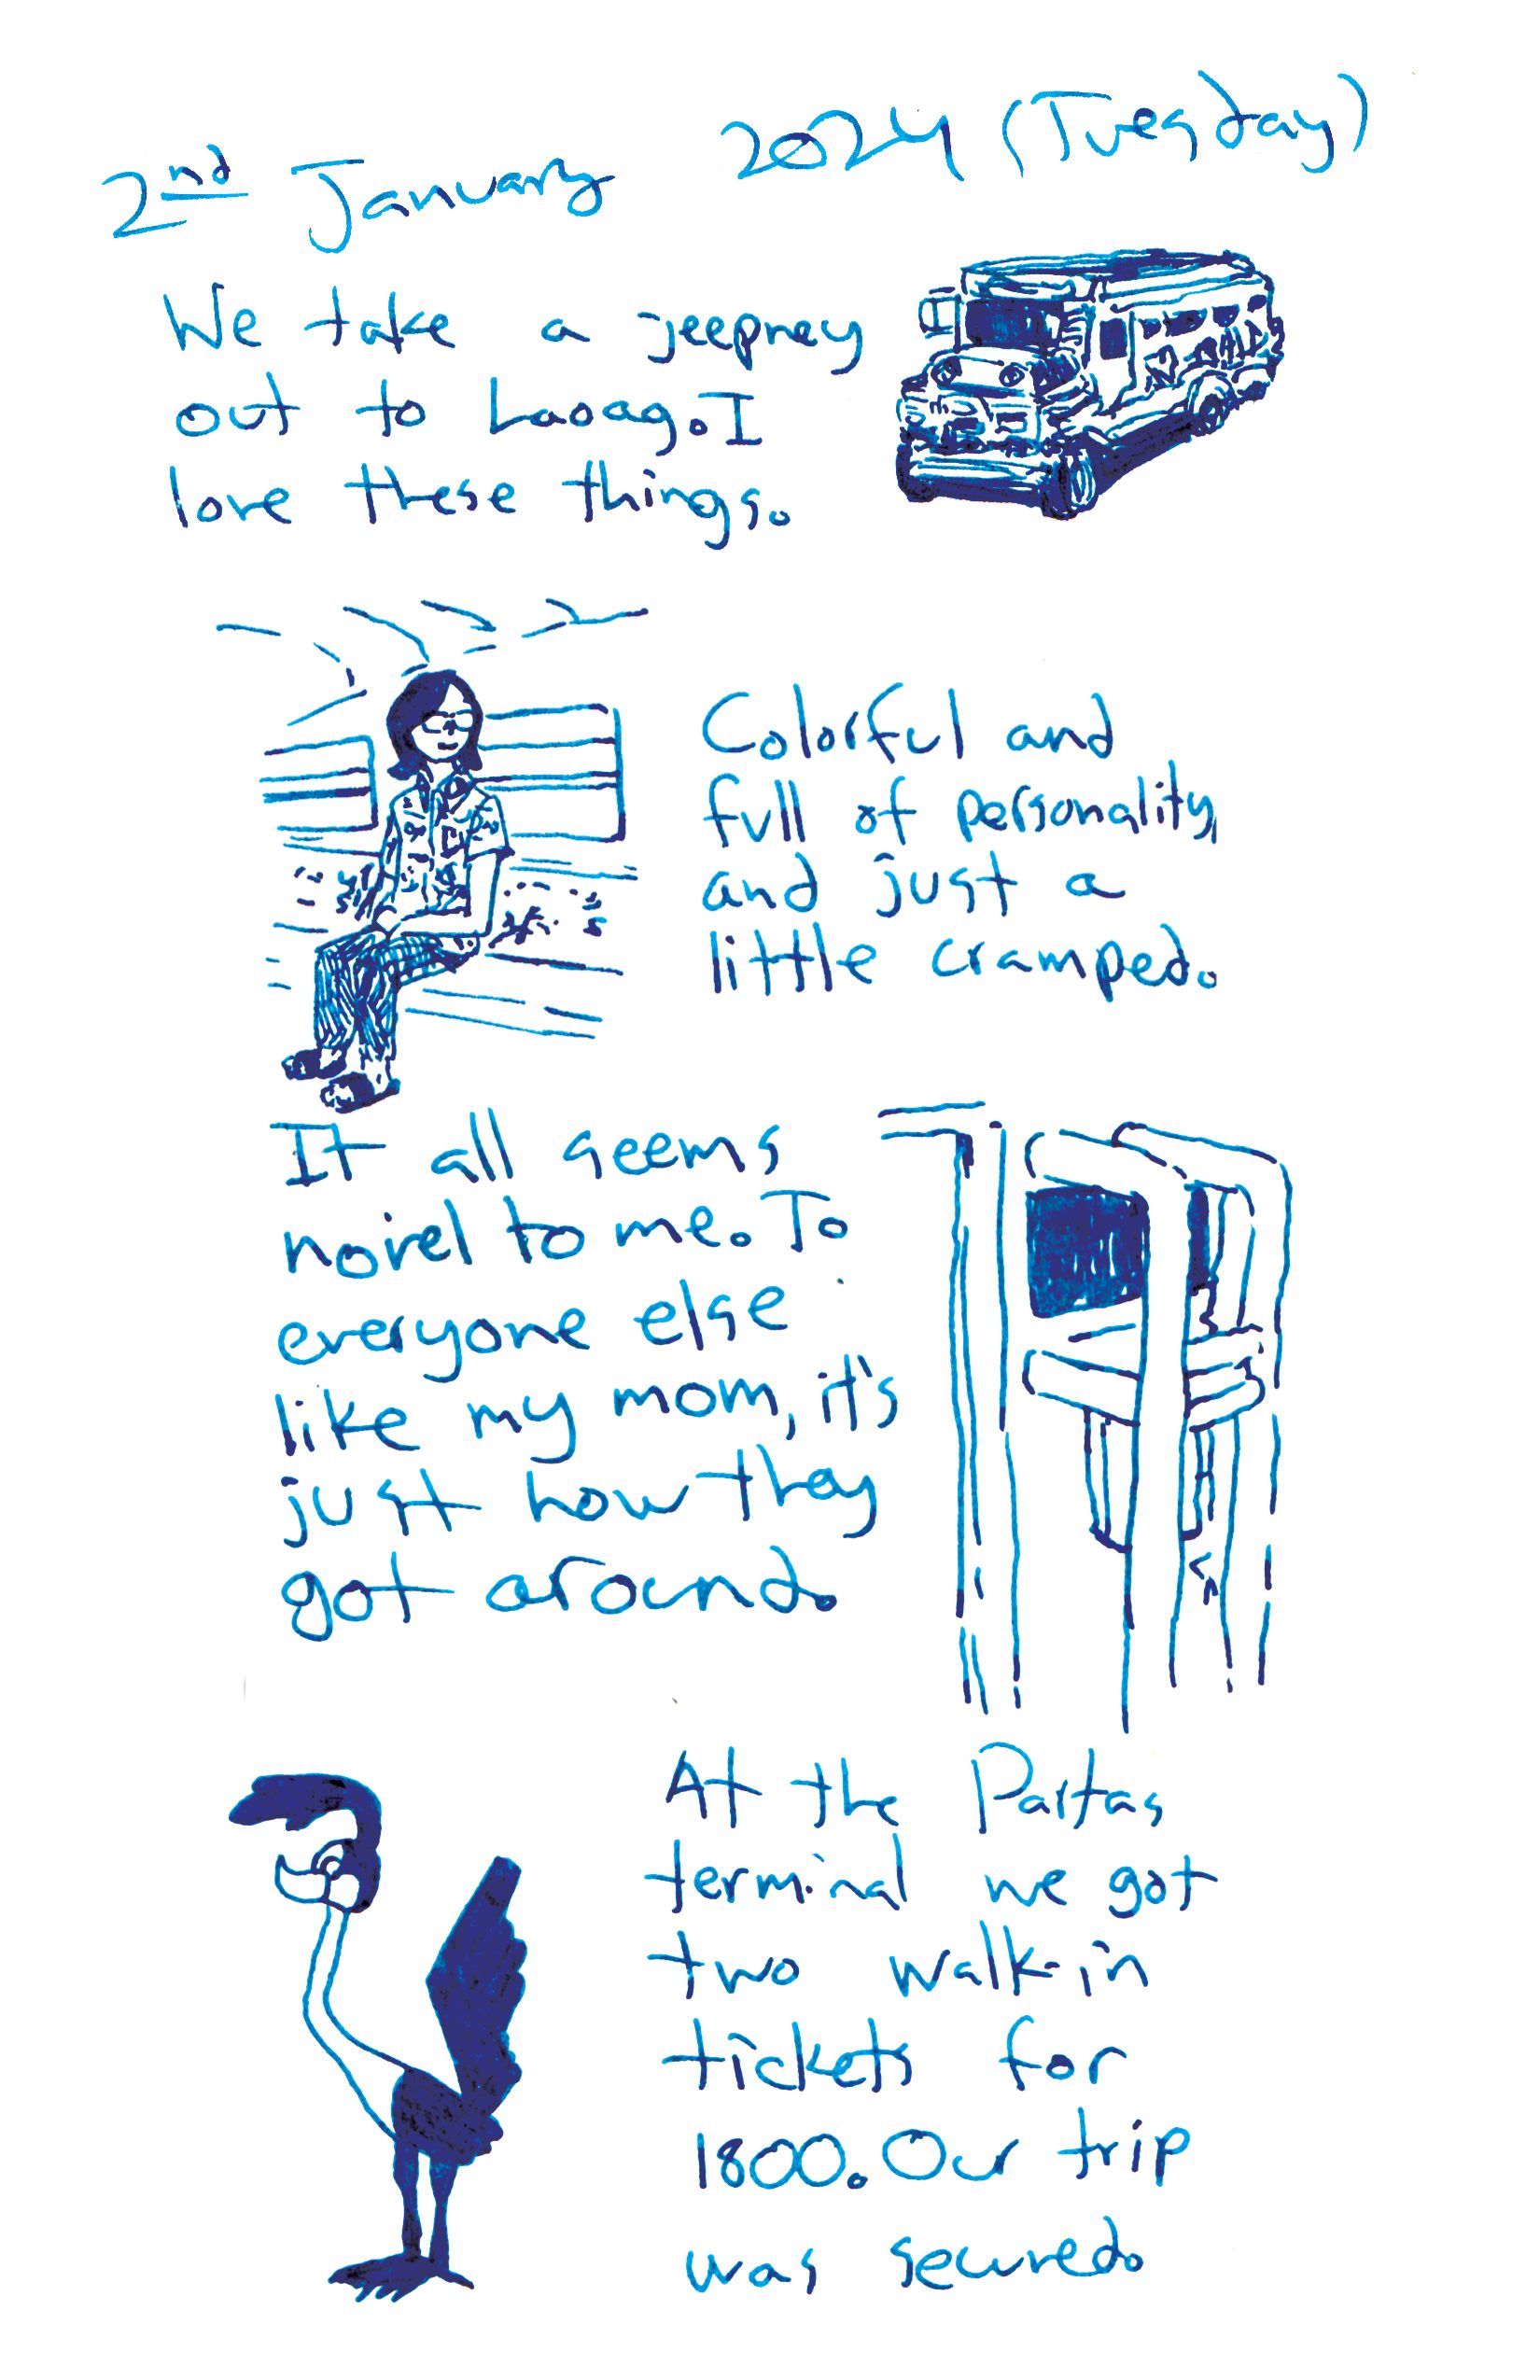 2nd January 2024 (Tuesday)
We take a jeepney
out to Laoag. I
love these things.
Colorful and
full of personality,
and just a
little cramped.
It all seems
novel to me. To
everyone else
like my mom, it's
just how they
got around.
At the Partas
terminal we got
two walk-in
tickets for
1800. Our trip
was secured.